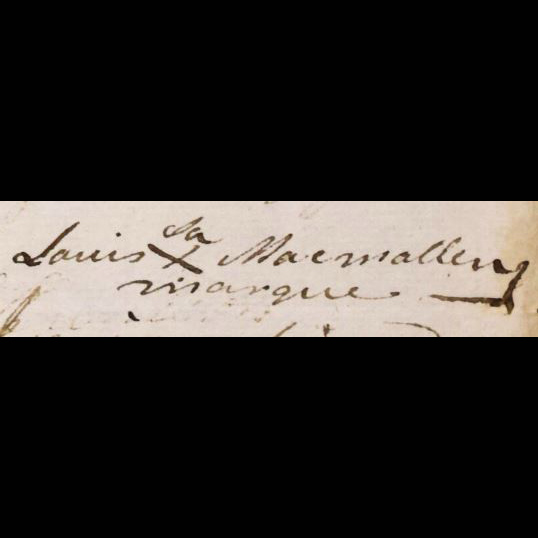 Louis sa X Macmallen
marque